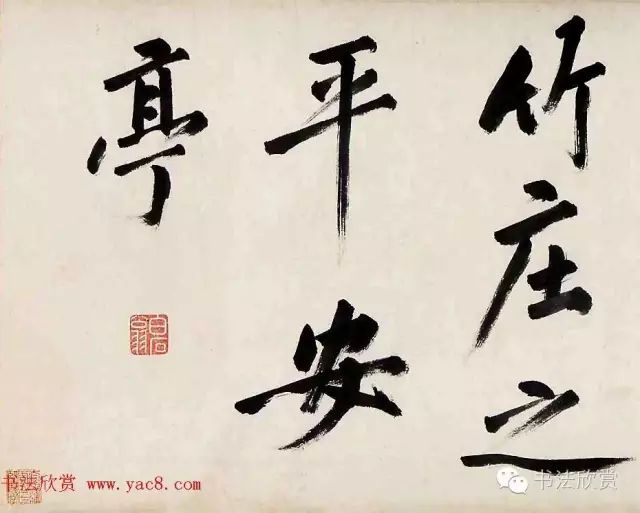 竹庄之
平安
亭
白石翁
书法欣赏 www.yac8.com
书法欣赏